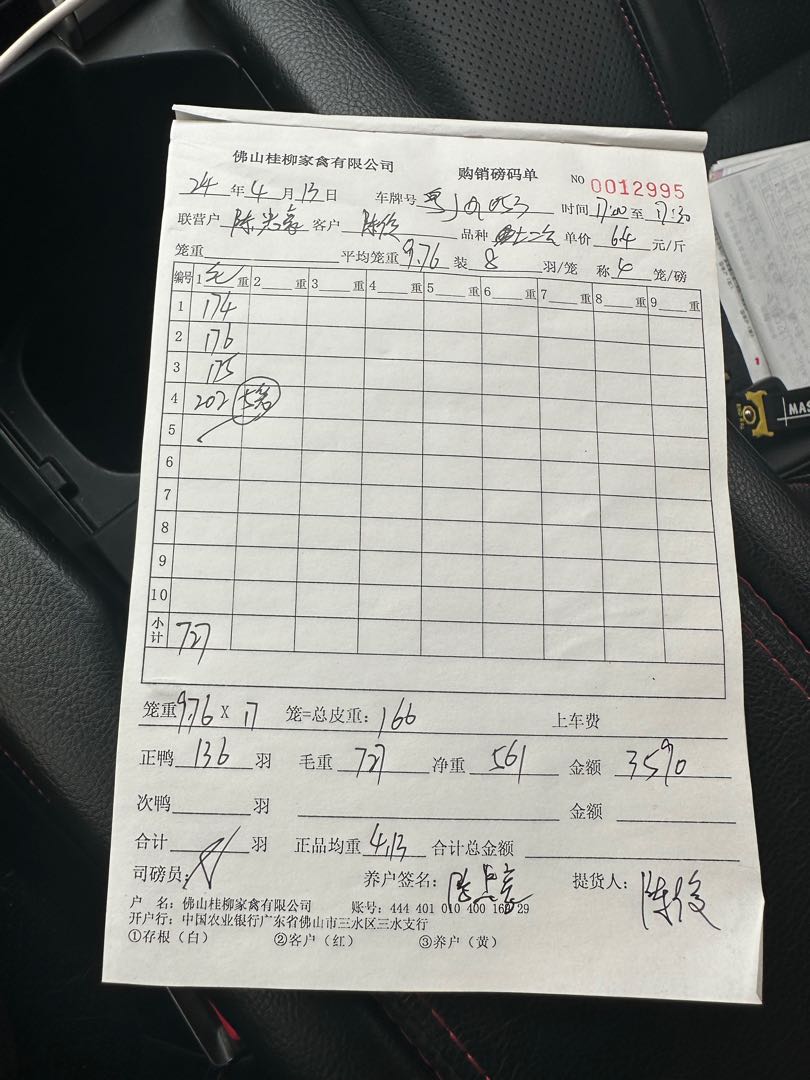 佛山桂柳家禽有限公司 购销磅码单 NO 0012995
24 年 4 月 13 日 车牌号 粤J 053 时间 17:00 至 17:30
联营户 陈 客户 陈俊 品种 单价 6.4 元/斤
笼重 平均笼重 9.76 装 8 羽/笼 称 4 笼/磅
编号 1 毛 重 2 重 3 重 4 重 5 重 6 重 7 重 8 重 9 重
1 174
2 176
3 175
4 202 5笼
5
6
7
8
9
10
小计 727
笼重 9.76 X 17 笼=总皮重: 166 上车费
正鸭 136 羽 毛重 727 净重 561 金额 3590
次鸭 羽 金额
合计 羽 正品均重 4.13 合计总金额
司磅员: 养户签名: 提货人: 陈俊
户 名: 佛山桂柳家禽有限公司 账号: 444 401 010 400 29
开户行: 中国农业银行广东省佛山市三水区三水支行
①存根（白） ②客户（红） ③养户（黄）
MAS